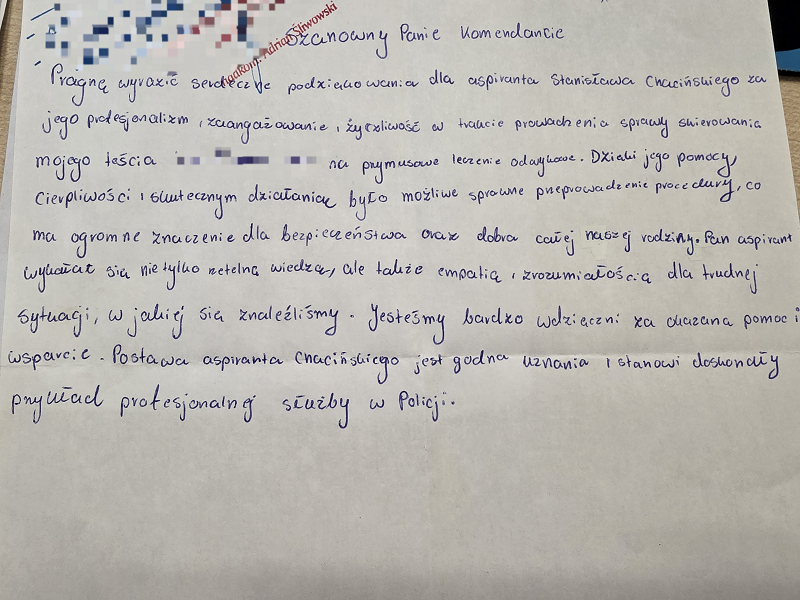 nadkom. Adrian Śliwowski
Szanowny Panie Komendancie
Pragnę wyrazić serdeczne podziękowania dla aspiranta Stanisława Chacińskiego za
jego profesjonalizm, zaangażowanie i życzliwość w trakcie prowadzenia sprawy skierowania
mojego teścia na przymusowe leczenie odwykowe. Dzięki jego pomocy,
cierpliwości i skutecznym działaniom było możliwe sprawne przeprowadzenie procedury, co
ma ogromne znaczenie dla bezpieczeństwa oraz dobra całej naszej rodziny. Pan aspirant
wykazał się nie tylko rzetelną wiedzą, ale także empatią i zrozumiałością dla trudnej
sytuacji, w jakiej się znaleźliśmy. Jesteśmy bardzo wdzięczni za okazaną pomoc i
wsparcie. Postawa aspiranta Chacińskiego jest godna uznania i stanowi doskonały
przykład profesjonalnej służby w Policji.